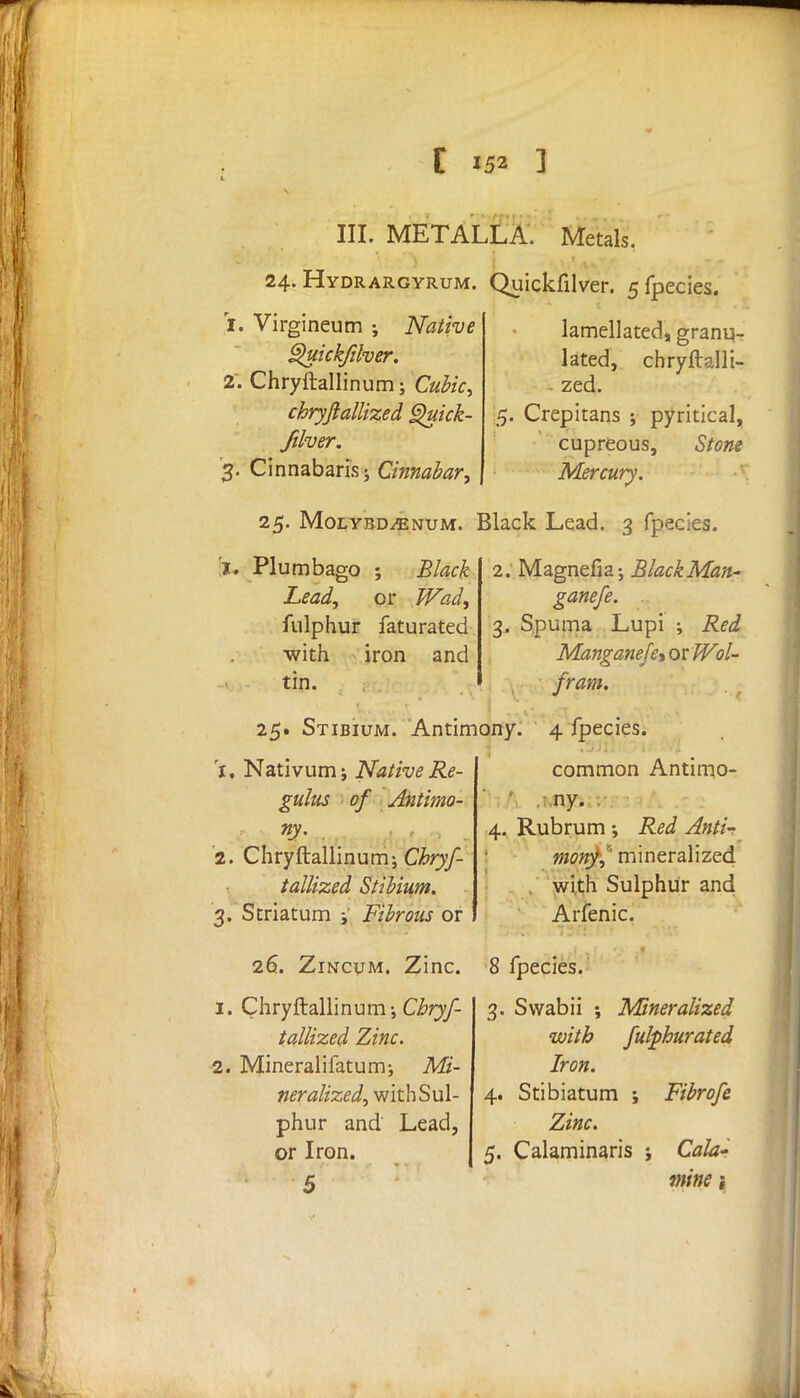 [ 152 ]
III. METALLA. Metals.
24. HYDRARGYRUM. Quickſilver. 5 ſpecies.
1. Virgineum ; Native
Quickſilver.
2. Chryſtallinum ; Cubic,
chryſtallized Quick-
ſilver.
3. Cinnabaris ; Cinnabar,
lamellated, granu-
lated, chryſtalli-
zed.
5. Crepitans ; pyritical,
cupreous, Stone
Mercury.
25. MOLYBDÆNUM. Black Lead. 3 ſpecies.
1. Plumbago ; Black
Lead, or Wad,
ſulphur ſaturated
with iron and
tin.
2. Magneſia ; Black Man-
ganeſe.
3. Spuma Lupi ; Red
Manganeſe, or Wol-
fram.
25. STIBIUM. Antimony. 4 ſpecies.
1. Nativum ; Native Re-
gulus of Antimo-
ny.
2. Chryſtallinum ; Chryſ-
tallized Stibium.
3. Striatum ; Fibrous or
common Antimo-
ny.
4. Rubrum ; Red Anti-
mony, mineralized
with Sulphur and
Arſenic.
26. ZINCUM. Zinc. 8 ſpecies.
1. Chryſtallinum ; Chryſ-
tallized Zinc.
2. Mineraliſatum ; Mi-
neralized, with Sul-
phur and Lead,
or Iron.
3. Swabii ; Mineralized
with ſulphurated
Iron.
4. Stibiatum ; Fibroſe
Zinc.
5. Calaminaris ; Cala-
5
mine ;